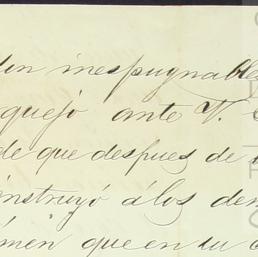 inespugnable
quejo ante V.
de que despues de
instruyó á los de
men que en tu